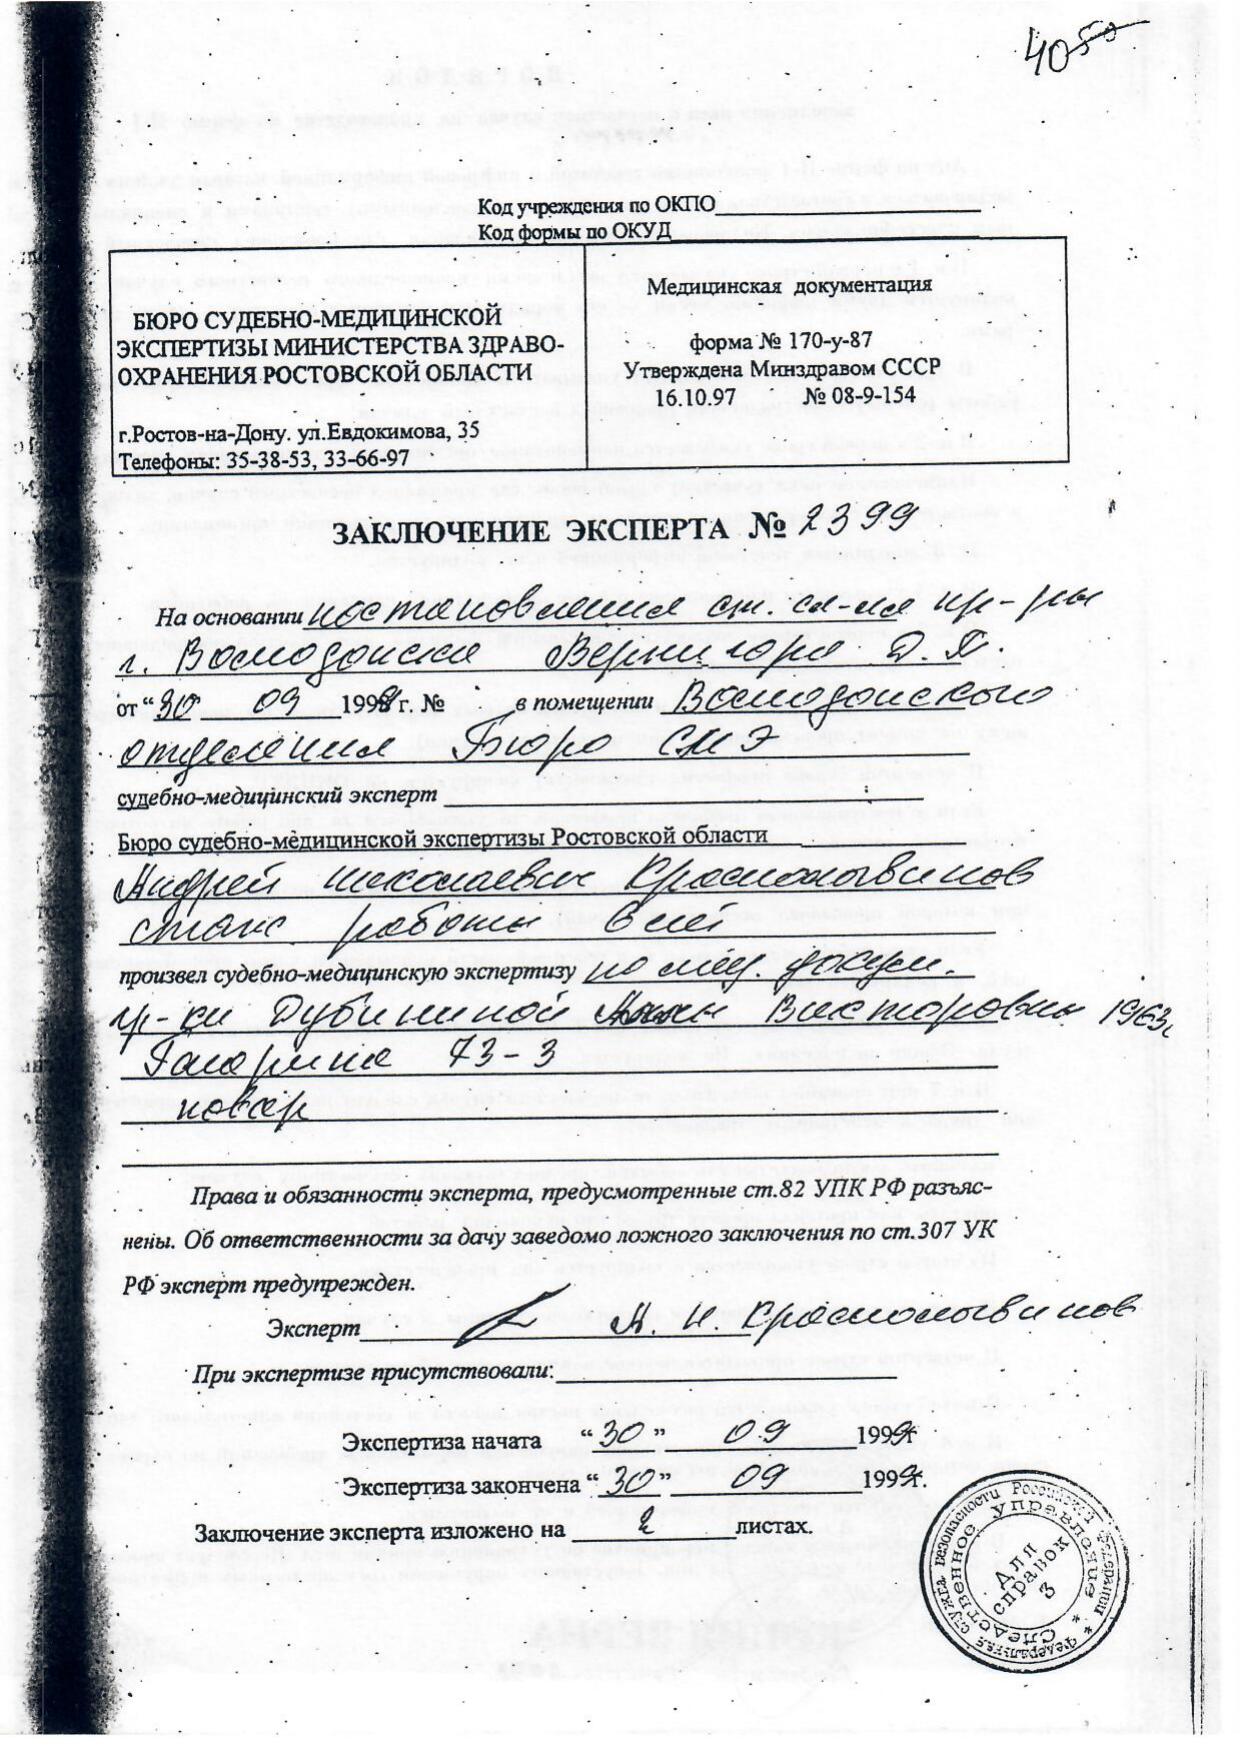 40 50
Код учреждения по ОКПО
Код формы по ОКУД
БЮРО СУДЕБНО-МЕДИЦИНСКОЙ
ЭКСПЕРТИЗЫ МИНИСТЕРСТВА ЗДРАВО-
ОХРАНЕНИЯ РОСТОВСКОЙ ОБЛАСТИ
г.Ростов-на-Дону. ул.Евдокимова, 35
Телефоны: 35-38-53, 33-66-97
Медицинская документация
форма № 170-у-87
Утверждена Минздравом СССР
16.10.97 № 08-9-154
ЗАКЛЮЧЕНИЕ ЭКСПЕРТА № 2399
На основании постановления ст. сл-ля пр-ры
г. Волгодонска Вернигора Д.
от “30 09 1999 г. № в помещении Волгодонского
отделения Бюро СМЭ
судебно-медицинский эксперт
Бюро судебно-медицинской экспертизы Ростовской области
Андрей Николаевич
стаж работы 6 лет
произвел судебно-медицинскую экспертизу по мед. докум.
гр-ки Дубининой Викторовны 1963г
Гагарина 73-3
повар
Права и обязанности эксперта, предусмотренные ст.82 УПК РФ разъяс-
нены. Об ответственности за дачу заведомо ложного заключения по ст.307 УК
РФ эксперт предупрежден.
Эксперт А. Н.
При экспертизе присутствовали:
Экспертиза начата “30” 09 1999г
Экспертиза закончена “30” 09 1999г.
Заключение эксперта изложено на 2 листах.
Федеральная служба безопасности Российской Федерации *
Следственное управление *
Для
справок
3